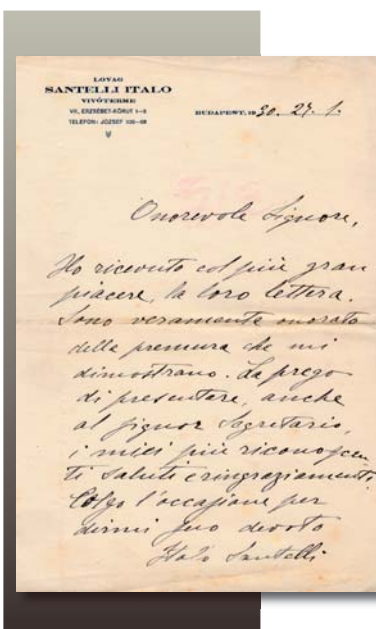 LOVAG
SANTELLI ITALO
VIVÓTERME
VII, ERZSÉBET-KÖRUT
TELEFON: JÓZSEF
BUDAPEST, 1930. 27. 1.
Onorevole Signore,
Ho ricevuto col più gran
piacere, la loro lettera.
Sono veramente onorato
della premura che mi
dimostrano. La prego
di presentare, anche
al Signor Segretario,
i miei più riconoscen
ti saluti e ringraziamenti.
Colgo l'occasione per
dirmi suo devoto
Italo Santelli